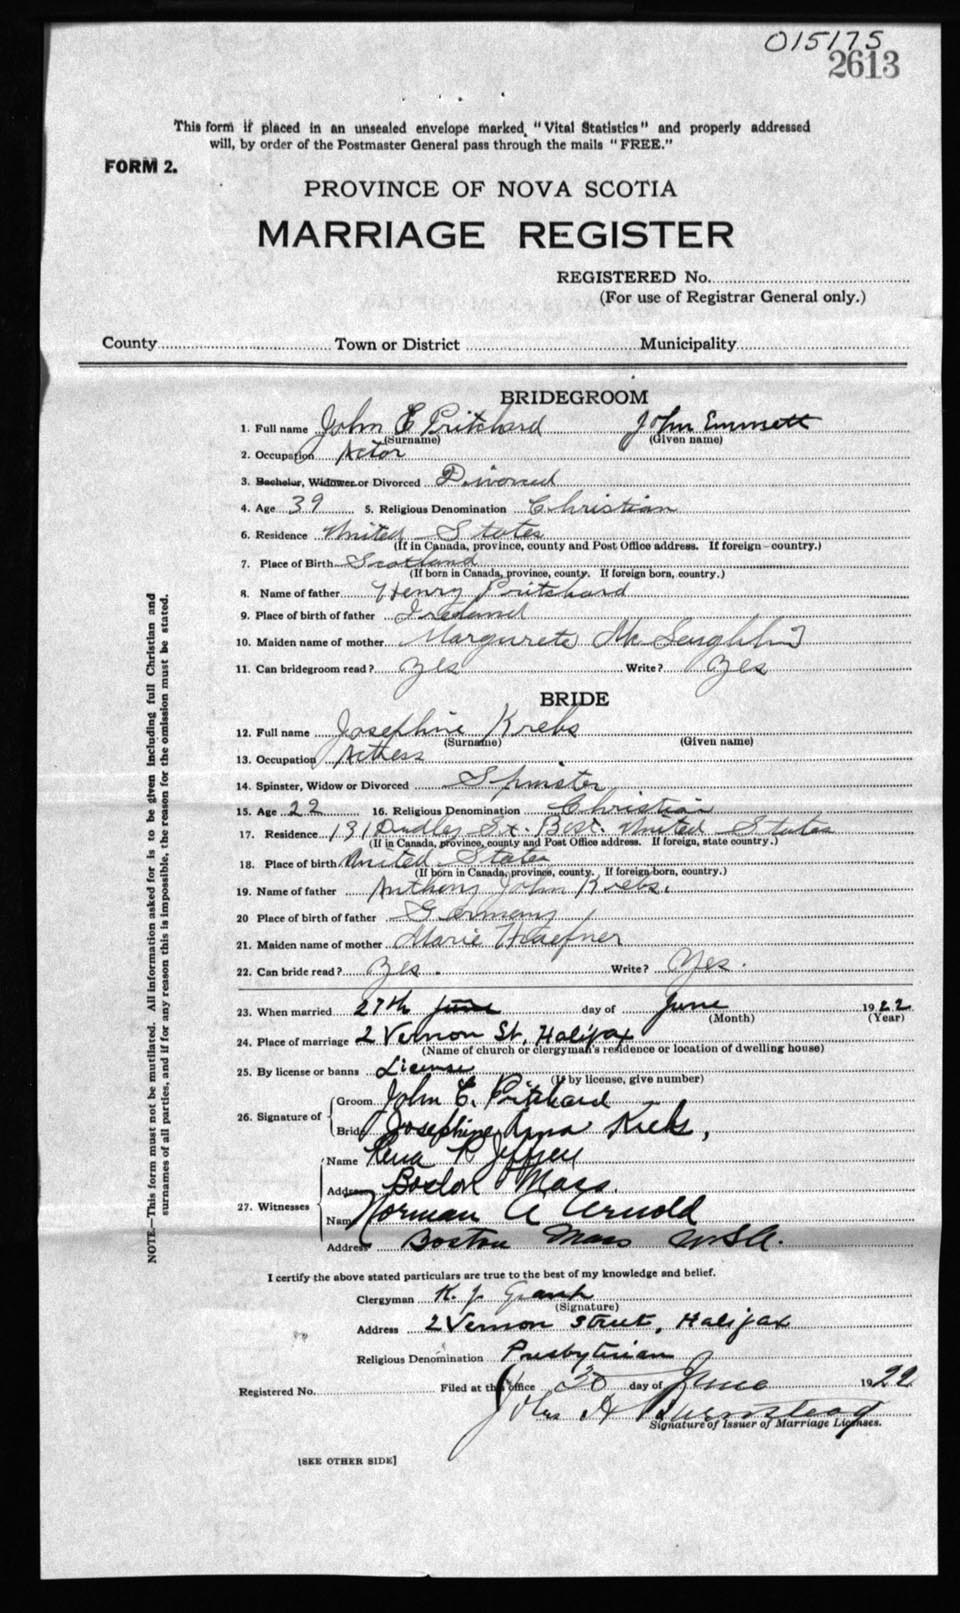 015175
2613
This form if placed in an unsealed envelope marked, "Vital Statistics" and properly addressed
will, by order of the Postmaster General pass through the mails "FREE."
FORM 2.
PROVINCE OF NOVA SCOTIA
MARRIAGE REGISTER
REGISTERED No.
(For use of Registrar General only.)
County Town or District Municipality
BRIDEGROOM
1. Full name John E Pritchard John Emmett
(Surname) (Given name)
2. Occupation Actor
3. Bachelor, Widower or Divorced Divorced
4. Age 39 5. Religious Denomination Christian
6. Residence United States
(If in Canada, province, county and Post Office address. If foreign-country.)
7. Place of Birth Scotland
(If born in Canada, province, county. If foreign born, country.)
8. Name of father Henry Pritchard
9. Place of birth of father Ireland
10. Maiden name of mother Margurete
11. Can bridegroom read? Yes Write? Yes
BRIDE
12. Full name Josephine Krebs
(Surname) (Given name)
13. Occupation Actress
14. Spinster, Widow or Divorced Spinster
15. Age 22 16. Religious Denomination Christian
17. Residence 191 Dudley St. Bost. United States
(If in Canada, province, county and Post Office address. If foreign, state country.)
18. Place of birth United States
(If born in Canada, province, county. If foreign born, country.)
19. Name of father Anthony John Krebs.
20 Place of birth of father Germany
21. Maiden name of mother Marie Haefner
22. Can bride read? Yes. Write? Yes.
23. When married 27th June day of June 1922
(Month) (Year)
24. Place of marriage 2 Vernon St, Halifax
(Name of church or clergyman's residence or location of dwelling house)
25. By license or banns License
(If by license, give number)
26. Signature of
Groom John E. Pritchard
Bride Josephine Anna Krebs,
27. Witnesses
Name Rena
Address Boston Mass.
Name Norman A Arnold
Address Boston Mass USA.
I certify the above stated particulars are true to the best of my knowledge and belief.
Clergyman K. J. Grant
(Signature)
Address 2 Vernon Street, Halifax
Religious Denomination Presbyterian
Registered No. Filed at this office 30 day of June 1922
John A
Signature of Issuer of Marriage Licenses.
[SEE OTHER SIDE]
NOTE.—This form must not be mutilated. All information asked for is to be given including full Christian and
surnames of all parties, and if for any reason this is impossible, the reason for the omission must be stated.